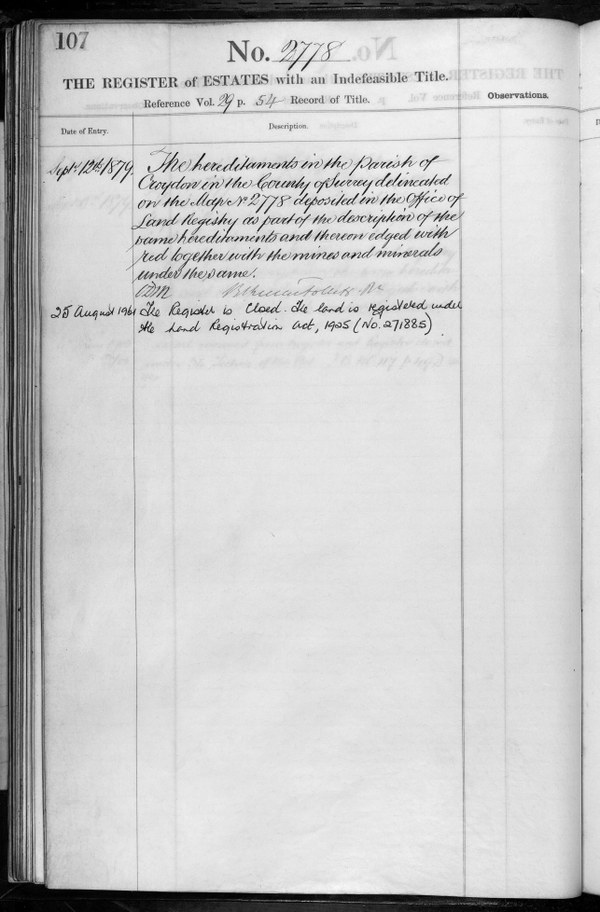 107
No. 2778
THE REGISTER of ESTATES with an Indefeasible Title.
Reference Vol. 29 p. 54 Record of Title.
Observations.
Date of Entry.
Description.
Septr. 12th. 1879.
The hereditaments in the Parish of
Croydon in the County of Surrey delineated
on the Map No 2778 deposited in the Office of
Land Registry as part of the description of the
same hereditaments and thereon edged with
red together with the mines and minerals
under the same.
25 August 1961
The Register is Closed. The land is registered under
the Land Registration Act, 1925 (No. 271885)